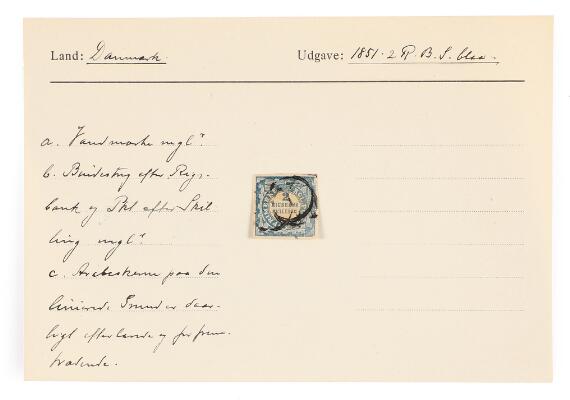 Land: Danmark.
Udgave: 1851. 2 R. B. S. blaa.
a. Vandmærke mgl.
b. Bindestreg efter Rigs-
bank og Pkt efter Skil-
ling mgl.
c. Arabeskerne paa den
linierede Grund er daar-
ligt efterlavede og for frem-
trædende.
2
RIGSBANK
SKILLING